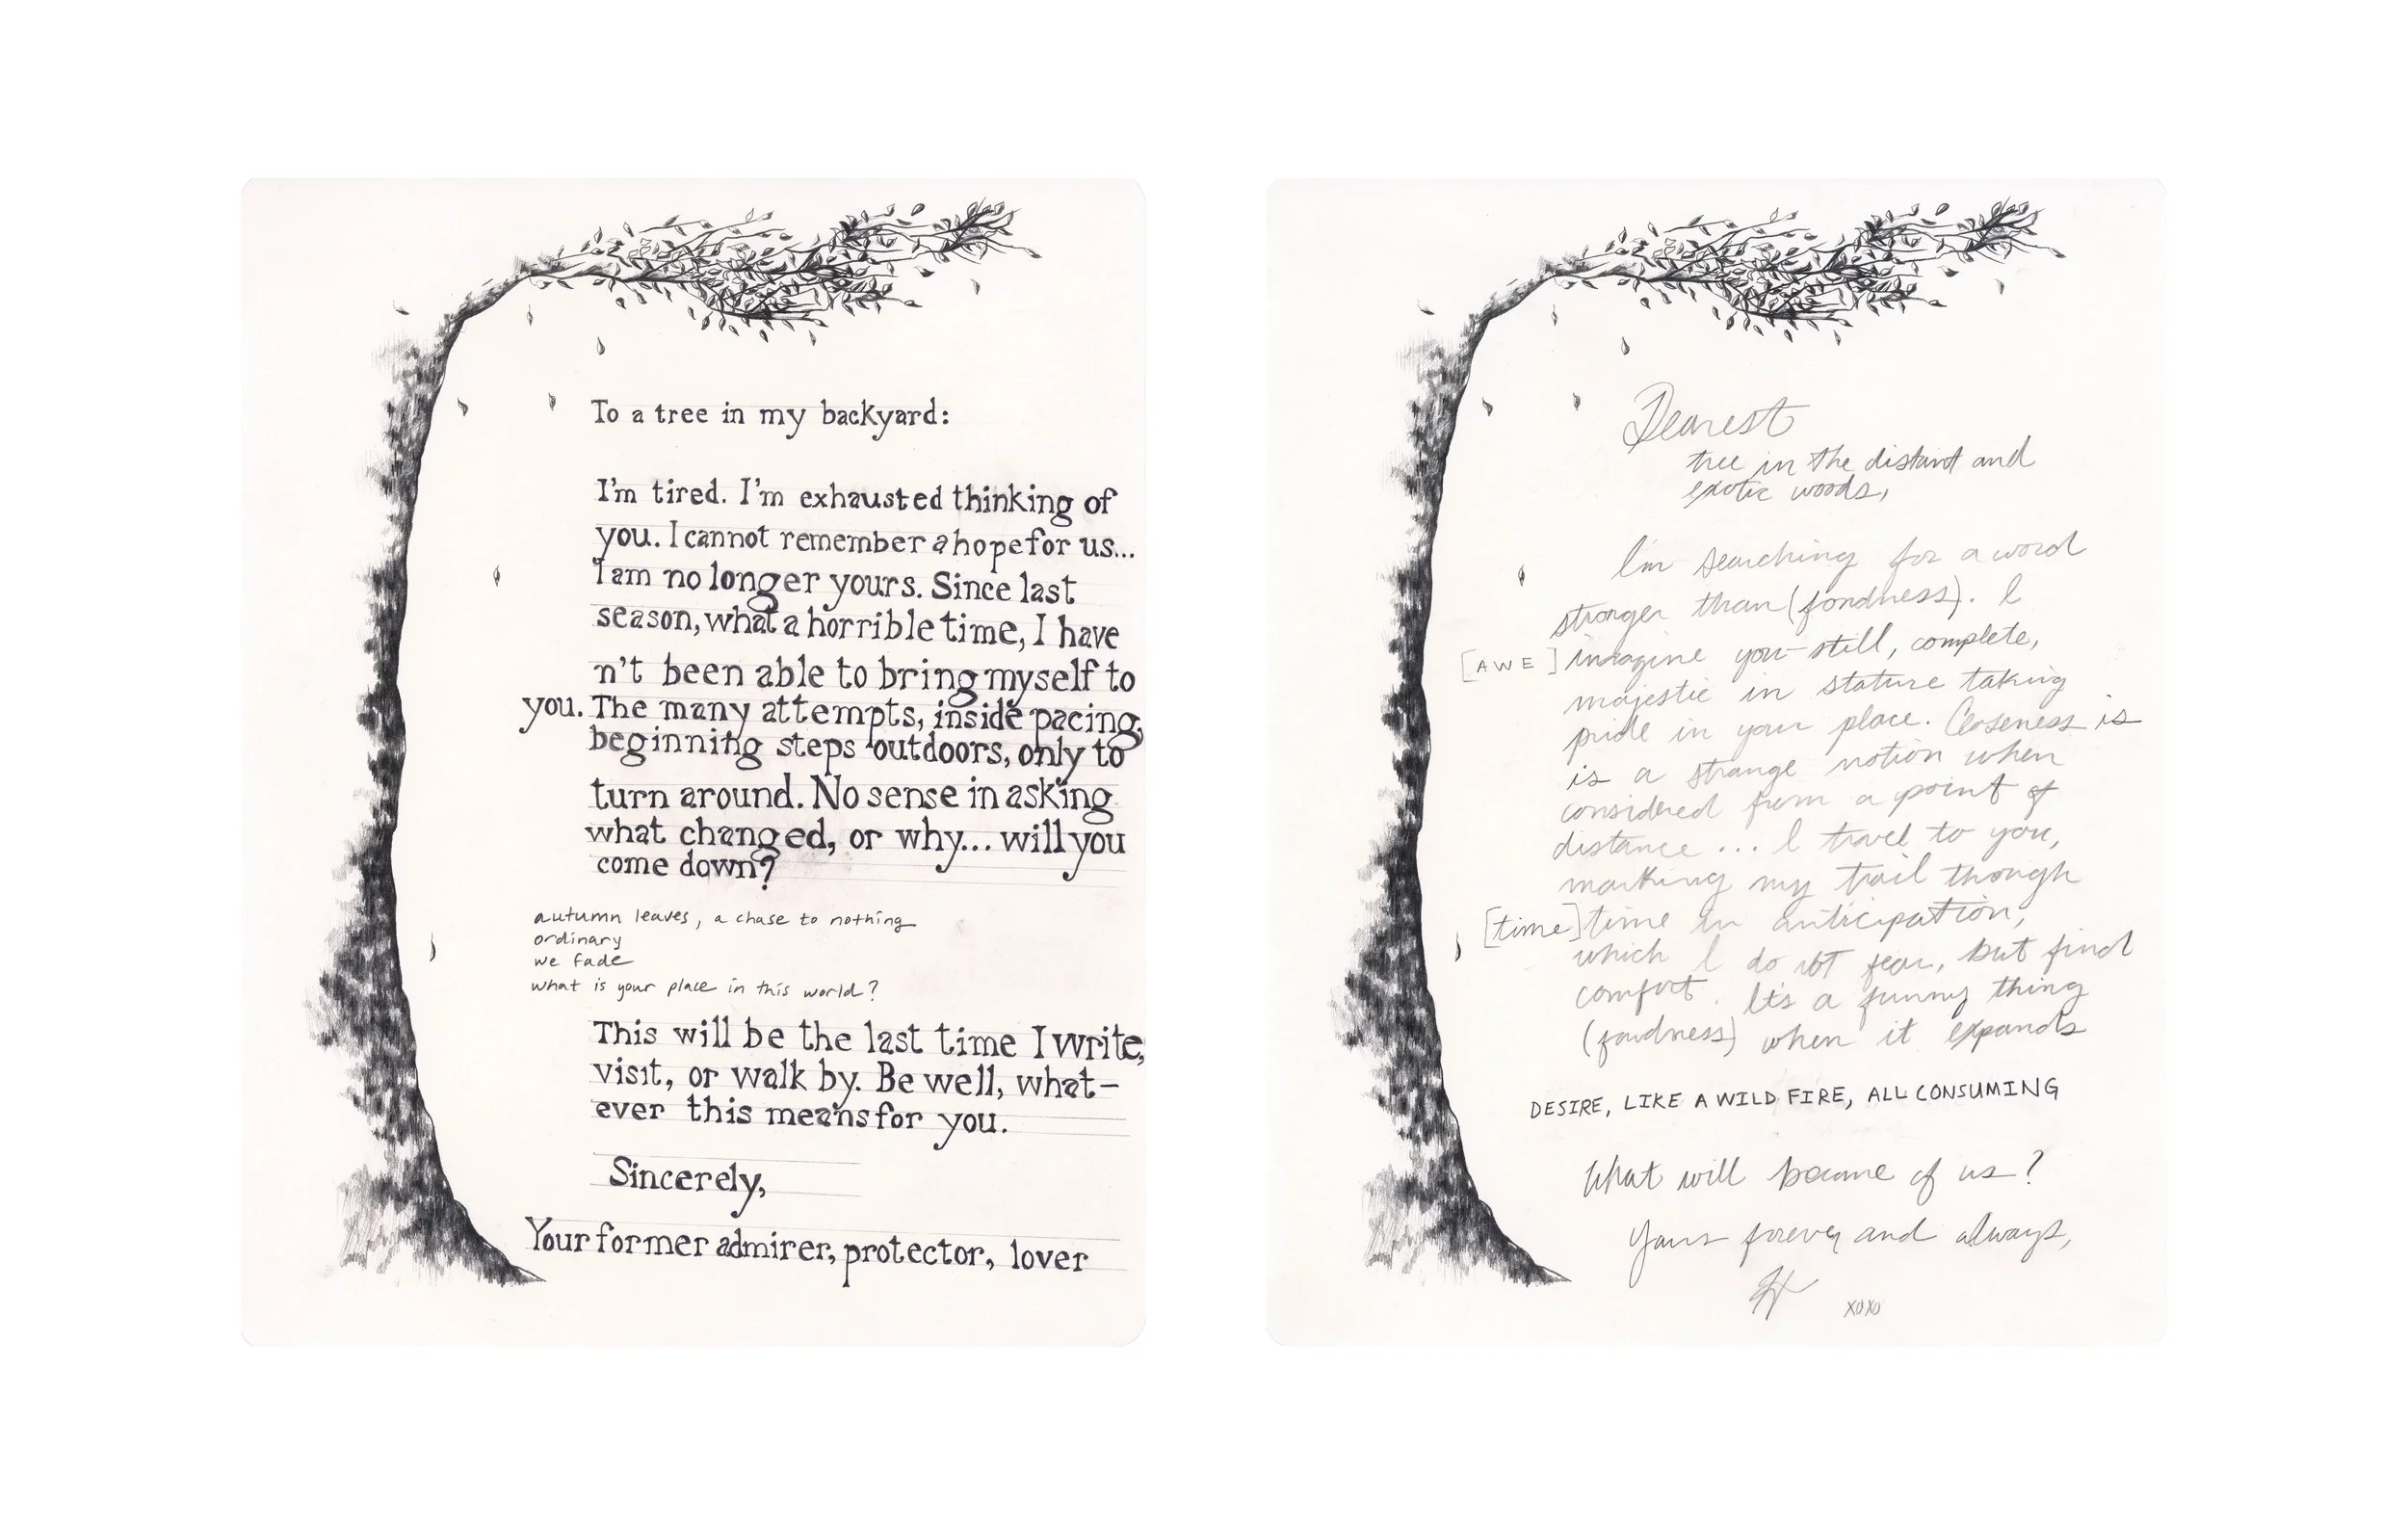 To a tree in my backyard:
I'm tired. I'm exhausted thinking of
you. I cannot remember a hope for us...
I am no longer yours. Since last
season, what a horrible time, I have
n't been able to bring myself to
you. The many attempts, inside pacing,
beginning steps outdoors, only to
turn around. No sense in asking
what changed, or why... will you
come down?
autumn leaves, a chase to nothing
ordinary
we fade
what is your place in this world?
This will be the last time I write,
visit, or walk by. Be well, what-
ever this means for you.
Sincerely,
Your former admirer, protector, lover
Dearest
tree in the distant and
exotic woods,
I'm searching for a word
stronger than (fondness). I
[AWE] imagine you-still, complete,
majestic in stature taking
pride in your place. Closeness is
is a strange notion when
considered from a point of
distance... I travel to you,
marking my trail though
[time] time in anticipation,
which I do not fear, but find
comfort. It's a funny thing
(fondness) when it expands
DESIRE, LIKE A WILD FIRE, ALL CONSUMING
What will become of us?
Yours forever and always,
XOXO